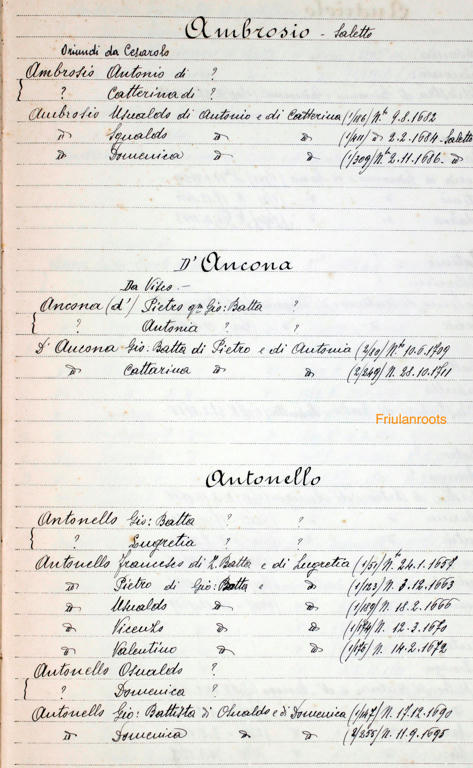 Ambrosio - Saletto
Oriundi da Cesarolo
Ambrosio Antonio di ?
{ ? Catterina di ?
Ambrosio Usualdo di Antonio e di Catterina (1/186) N.to 9.8.1682
D Squaldo D D (1/411) D 2.2.1684. Saletto
D Domenica D D (1/309) N.to 2.11.1686. D
D' Ancona
Da Visco. -
Ancona (d') Pietro qm Gio: Batta ?
{ ? Antonia ? ?
D' Ancona Gio: Batta di Pietro e di Antonia (2/80) N.to 10.6.1709
D Cattarina D D (2/249) N. 28.10.1711
Friulanroots
Antonello
Antonello Gio: Batta ? ?
{ ? Lugretia ? ?
Antonello Francesco di Z. Batta e di Lugretia (1/51) N.to 24.1.1657
D Pietro di Gio: Batta e D (1/123) N. 3.12.1663
D Usualdo D D (1/159) N. 18.2.1666
D Vicenzo D D (1/174) N. 12.3.1670
D Valentino D D (1/175) N. 14.2.1672
Antonello Osualdo ?
{ ? Domenica ?
Antonello Gio: Battista di Osualdo e di Domenica (1/447) N. 17.12.1690
D Domenica D D (2/255) N. 11.9.1695